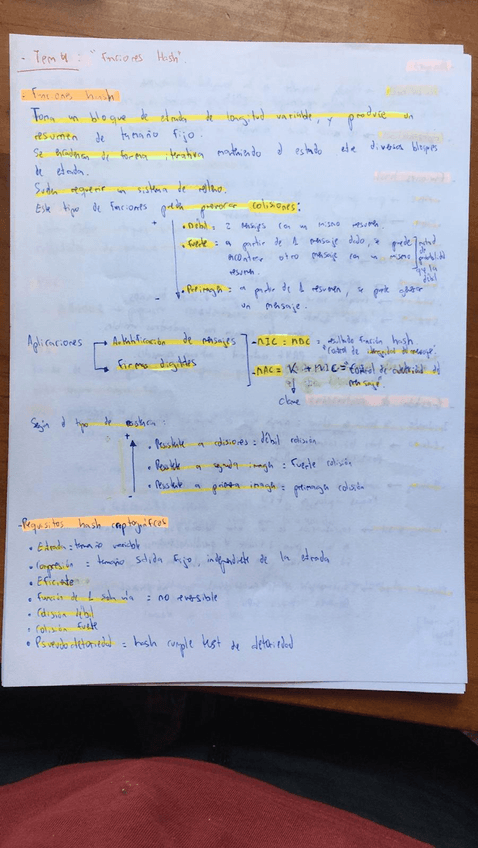 - Tema 4: "Funciones Hash".
- Funciones hash
Toma un bloque de entrada de longitud variable, y produce un
resumen de tamaño fijo.
Se encadenan de forma iterativa manteniendo el estado entre diversos bloques
de entrada.
Suelen requerir un sistema de relleno.
Este tipo de funciones pueden provocar colisiones:
+
• Débil = 2 mensajes con un mismo resumen.
• Fuerte = a partir de 1 mensaje dado, se puede
encontrar otro mensaje con un mismo
resumen.
mitad de probabilidad que la débil
• Preimagen = a partir de 1 resumen, se puede
un mensaje.
-
Aplicaciones
Autentificación de mensajes
Firmas digitales
- MIC = MDC = resultado función hash
"control de integridad de mensaje".
- MAC = K + MIC = control de autenticidad de
mensaje.
clave
Según el tipo de resistencia:
+
• Resistente a colisiones = débil colisión
• Resistente a segunda imagen = Fuerte colisión
• Resistente a primera imagen = preimagen colisión
-
- Requisitos hash criptográficos
• Entrada = tamaño variable
• Compresión = tamaño salida fijo, independiente de la entrada
• Eficiente
• Función de 1 sola vía = no reversible
• Colisión débil
• Colisión fuerte
• Pseudoaleatoriedad = hash cumple test de aleatoriedad